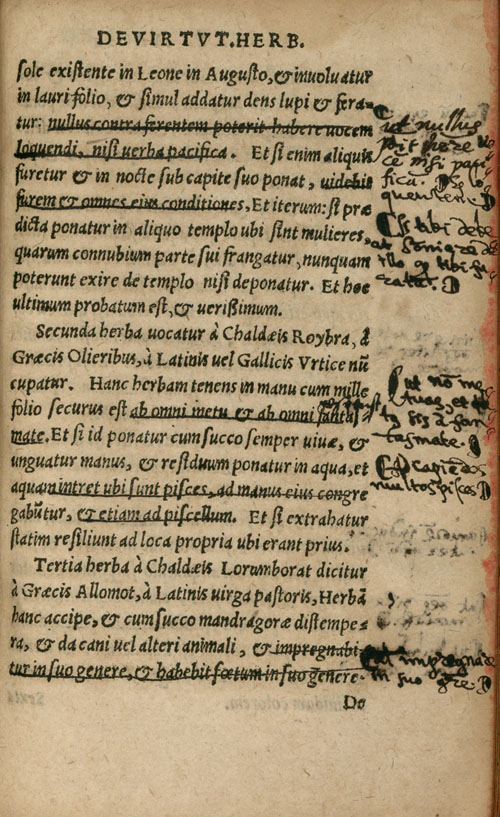 DE VIRTVT. HERB.
sole existente in Leone in Augusto, & inuoluatur
in lauri folio, & simul addatur dens lupi & fera-
tur: nullus contra ferentem poterit habere vocem
loquendi, nisi uerba pacifica. Et si enim aliquis
furetur & in nocte sub capite suo ponat, uidebit
furem & omnes eius conditiones. Et iterum: si præ
dicta ponatur in aliquo templo ubi sint mulieres,
quarum connubium parte sui frangatur, nunquam
poterunt exire de templo nisi deponatur. Et hoc
ultimum probatum est, & uerißimum.
Secunda herba uocatur à Chaldæis Roybra, à
Græcis Olieribus, à Latinis uel Gallicis Vrtice nũ
cupatur. Hanc herbam tenens in manu cum mille
folio securus est ab omni metu & ab omni fantas-
mate. Et si id ponatur cum succo semper uiuæ, &
unguatur manus, & residuum ponatur in aqua, et
aquam intret ubi sunt pisces, ad manus eius congre
gabũtur, & etiam ad piscellum. Et si extrahatur
statim resiliunt ad loca propria ubi erant prius.
Tertia herba à Chaldæis Lorumborat dicitur
à Græcis Allomot, à Latinis uirga pastoris, Herbã
hanc accipe, & cum succo mandragoræ distempe-
ra, & da cani uel alteri animali, & impregnabi-
tur in suo genere, & habebit fœtum in suo genere.
De
ut nullus
nisi paci
fica.
tibi
ut nõ me
tuas, et
sis à fan
tasmate.
capiẽdos
multos pisces
ut impregna
in suo